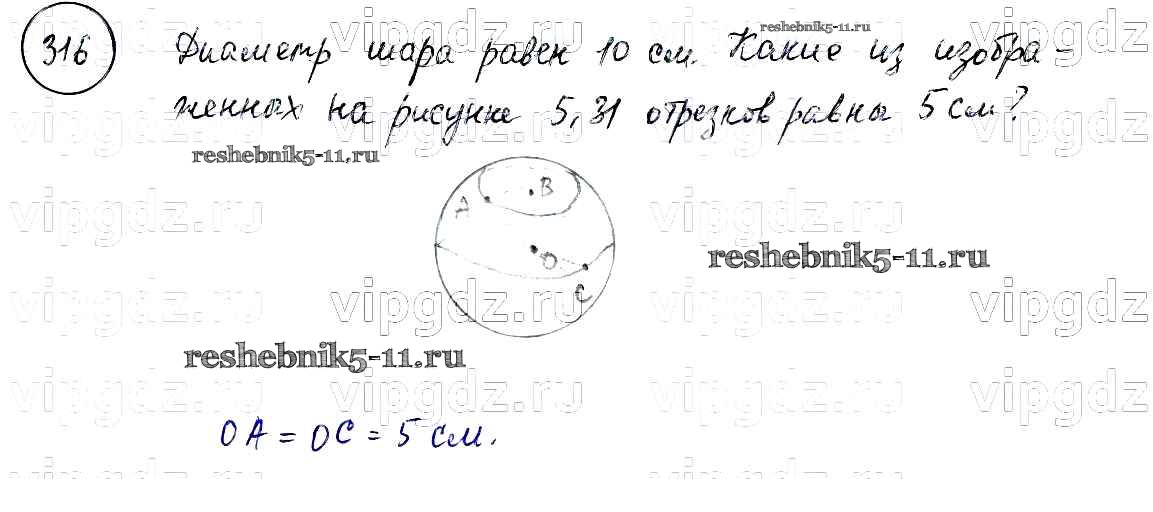 316
Диаметр шара равен 10 см. Какие из изобра-
женных на рисунке 5,31 отрезков равны 5 см?
reshebnik5-11.ru
reshebnik5-11.ru
B
A
O
C
reshebnik5-11.ru
reshebnik5-11.ru
OA = OC = 5 см.
vipgdz.ru vipgdz.ru vipgdz.ru vipgdz
vipgdz.ru vipgdz.ru vipgdz
vipgdz.ru vipgdz.ru
vipgdz.ru vipgdz.ru vipgdz.ru vipgdz
vipgdz.ru vipgdz.ru vipgdz.ru vipgdz